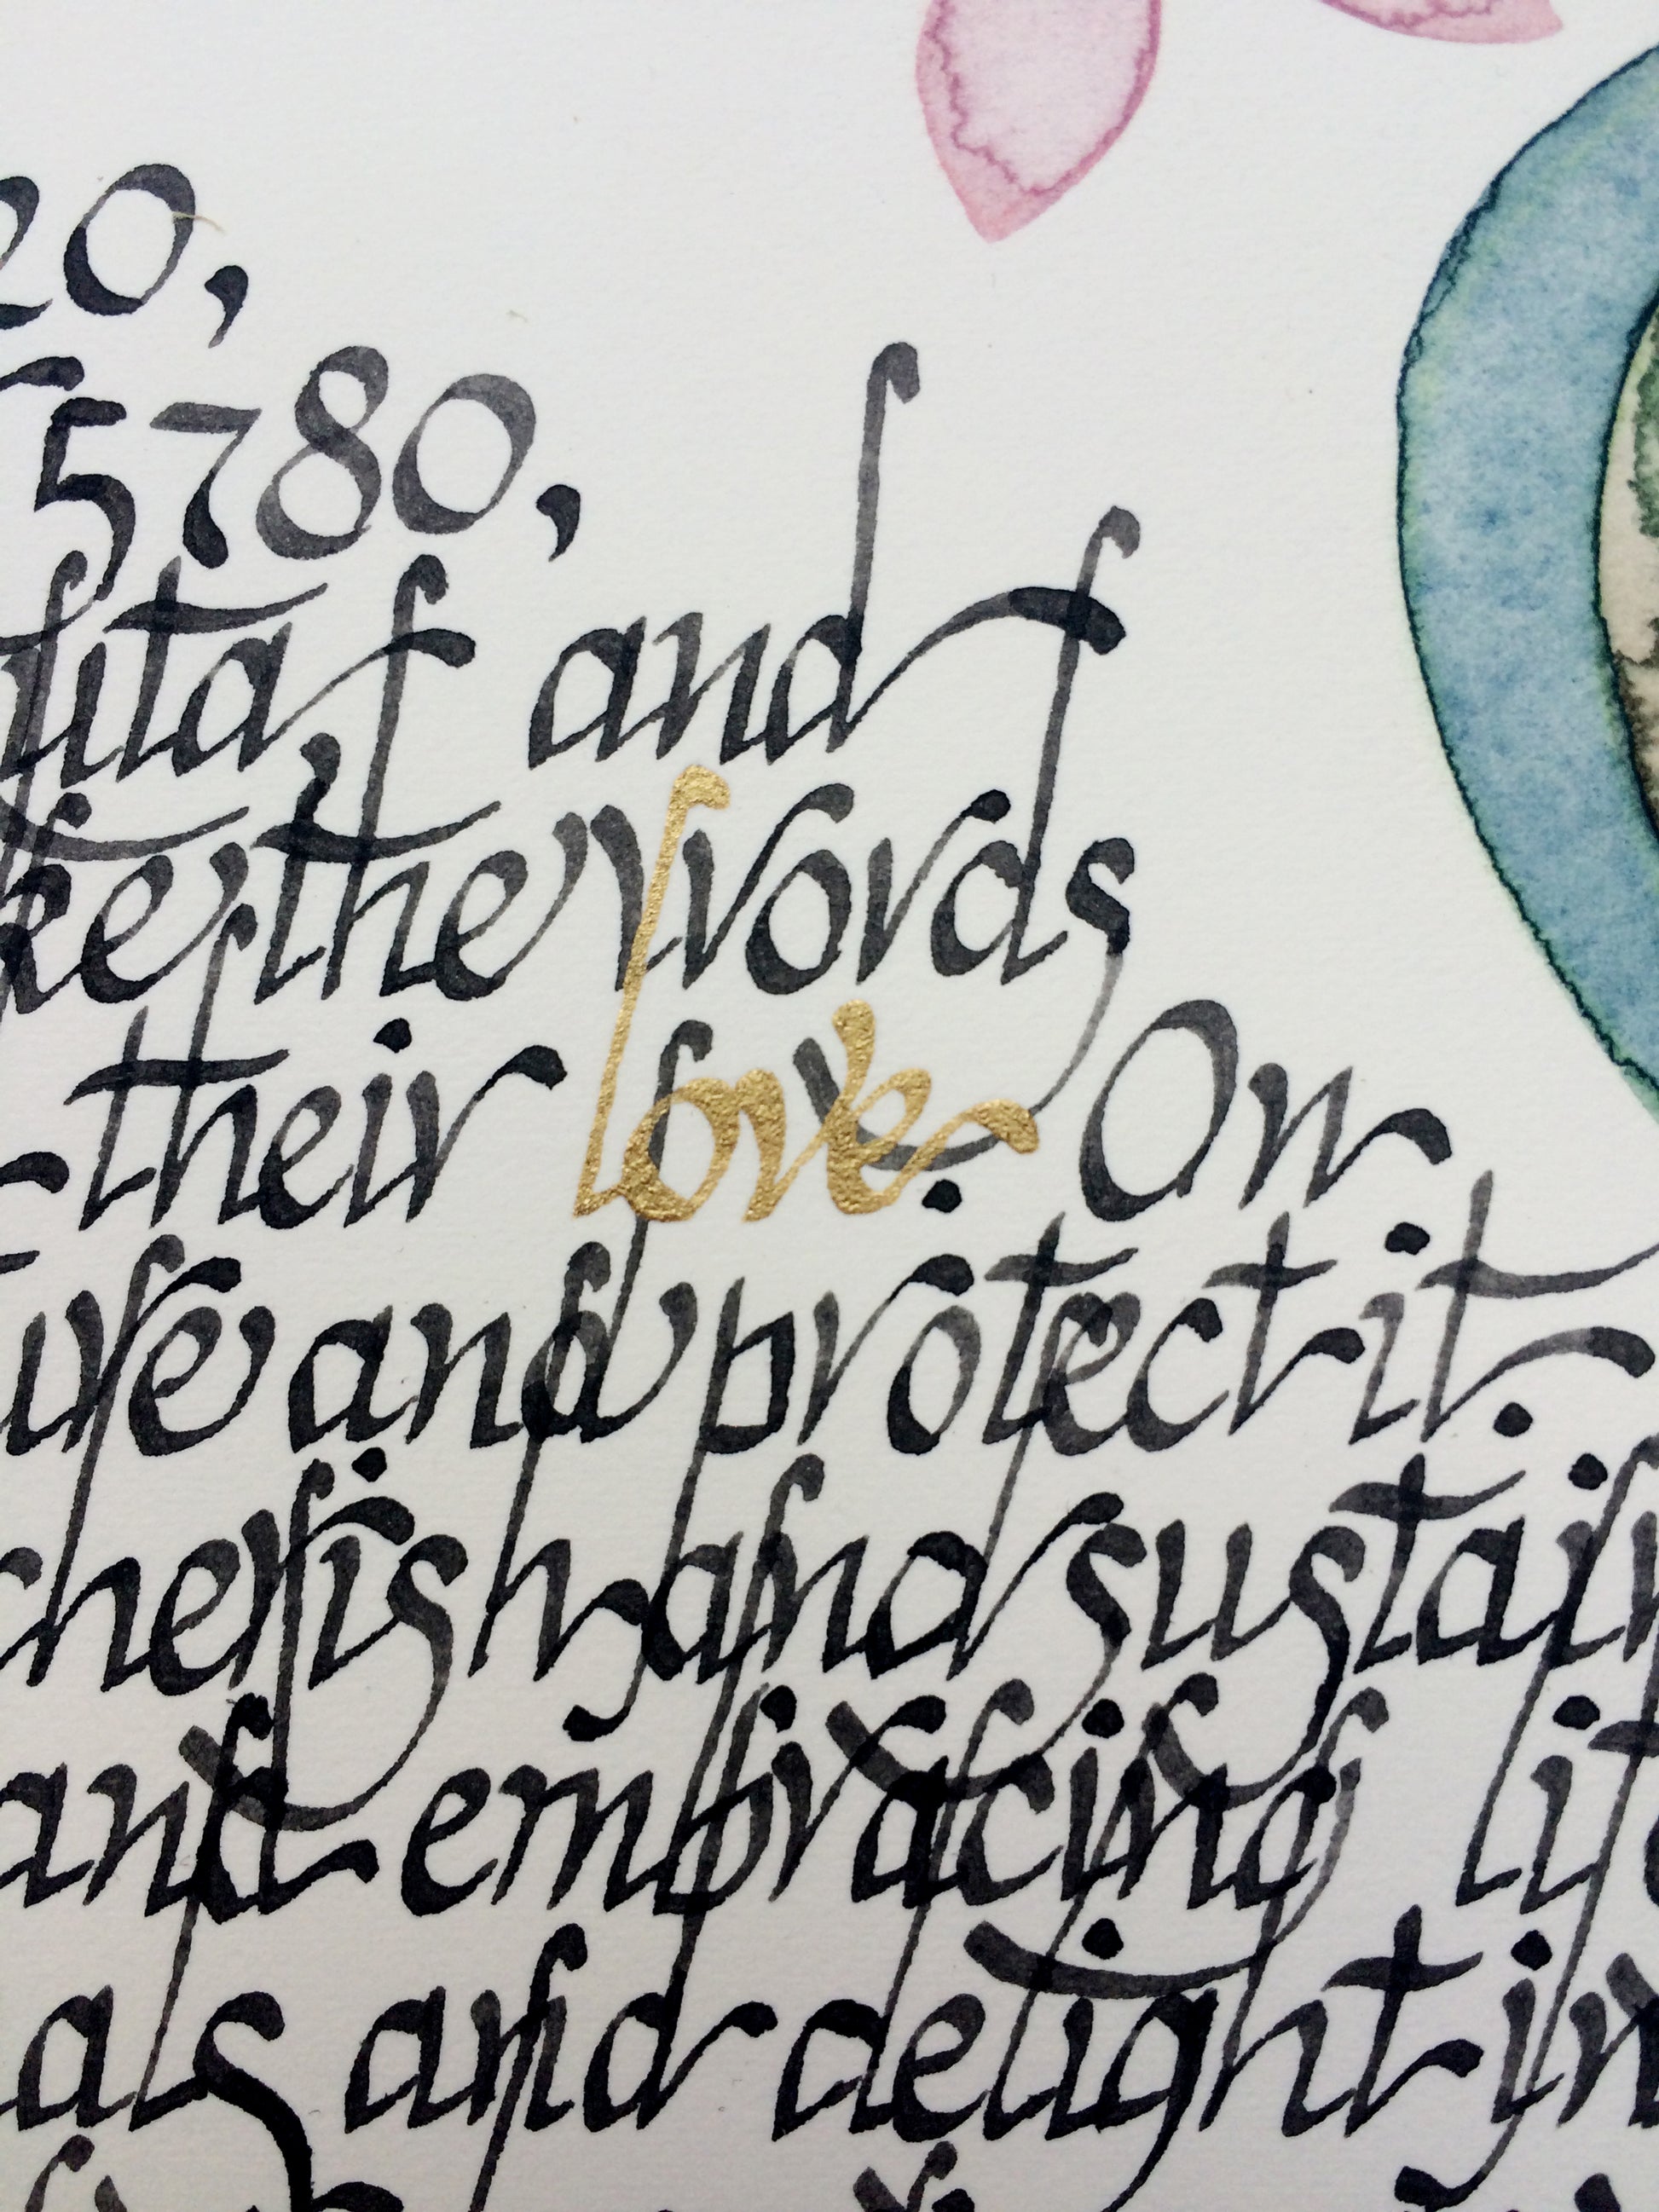 20,
5780,
and
the words
their love. On
and protect it.
cherish and sustain
and embracing
and delight in